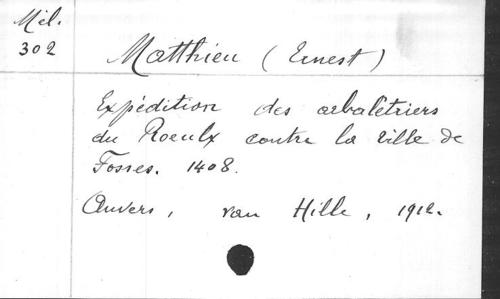 Mél.
302
Matthieu (Ernest)
Expédition des arbalétriers
du Roeulx contre la ville de
Fosses. 1408.
Anvers, van Hille, 1912.